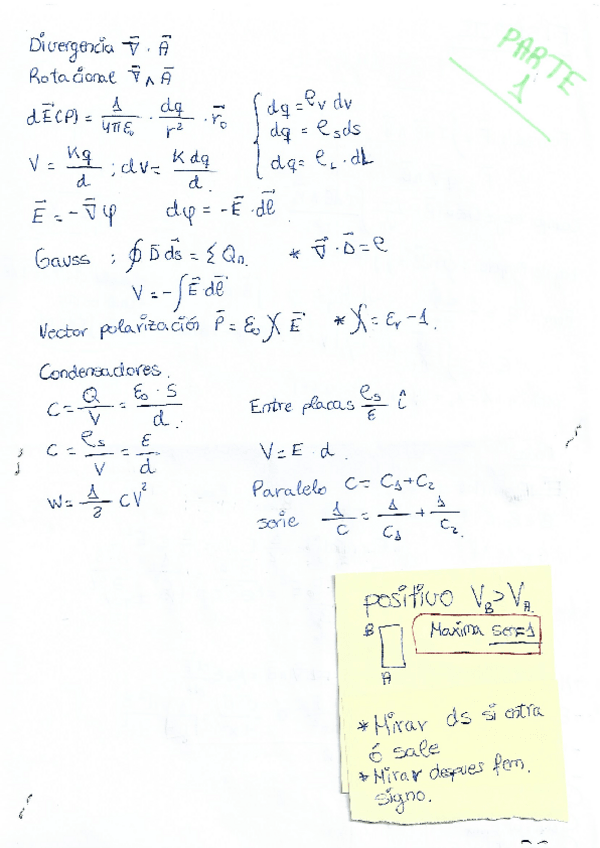 PARTE
1
Divergencia ∇⃗ · A⃗
Rotacional ∇⃗ ∧ A⃗
dE⃗(P) = 1/(4πε₀) · dq/r² · r⃗₀ { dq = ρv dv
dq = ρs ds
dq = ρL · dL
V = Kq/d ; dV = K dq/d
E⃗ = -∇⃗φ dφ = -E⃗ · dℓ⃗
Gauss : ∮ D⃗ ds⃗ = Σ Qn * ∇⃗ · D⃗ = ρ
V = -∫ E⃗ dℓ⃗
Vector polarización P⃗ = ε₀ χ E⃗ * χ = εr - 1.
Condensadores.
C = Q/V = ε₀ · S/d. Entre placas ρs/ε î
C = ρs/V = ε/d V = E · d.
W = 1/2 CV² Paralelo C = C1 + C2
serie 1/C = 1/C1 + 1/C2.
positivo VB > VA.
B Maxima sen=1
A
* Mirar ds si entra
ó sale
* Mirar despues fem.
signo.